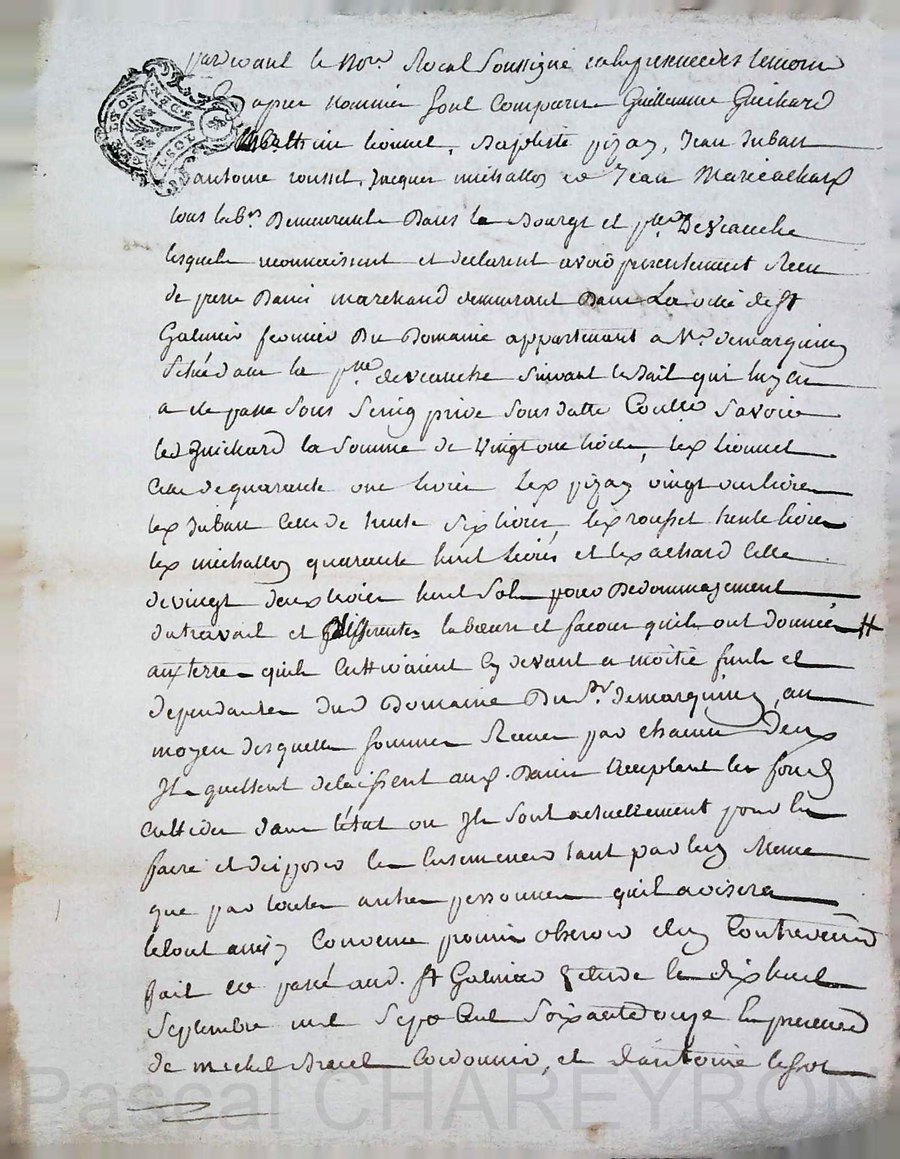 pardevant le No.re Royal Soussigné en la presence des temoins
cy apres nommés sont comparus Guillaume Guichard
Mathieu lionnet, Baptiste pizay, Jean Duban
antoine rousset, Jacques michallon et Jean Marie achard
tous lab.rs Demeurents Dans le Bourgt et p.sse De Veauche
lesquels reconnaissent et declarent avoir presentement Receu
de pierre Danis marchand demeurant Dans La ville de S.t
Galmier fermier Du Domaine appartenant a M.r demarquins
Scitué dans la p.sse de veauche suivant le Bail qui luy en
a ete passé sous seing privé sous datte Coutté savoir
led Guichard la somme de vingt une livres, led lionnet
Celle de quarante une livres led pizay vingt une livres
led Duban Celle de trente six livres, led rousset trente livres
led michallon quarante huit livres et led achard Celle
de vingt deux livres huit sols pour Dedommagement
du travail et differentes labeures et facons quils ont données #
aux terres quils Cultivaient Cy devant a moitié fruits et
dependantes dud Domaine Du S.r demarquins, au
moyen desquelles sommes Receues par chacun deux
Ils quittent delaissent aud. Danis acceptant les fonds
cultivés dans l'état ou ils sont actuellement pour les
faire et disposer les ensemencer tant par luy Meme
que par toutes autres personnes quil avisera
le tout ainsy Convenu promis observer
fait et passé aud. S.t Galmier Etude le dix huit
Septembre mil Sept Cent Soixante douze En presence
de michel Cordonnier, et d'antoine
Pascal CHAREYRON